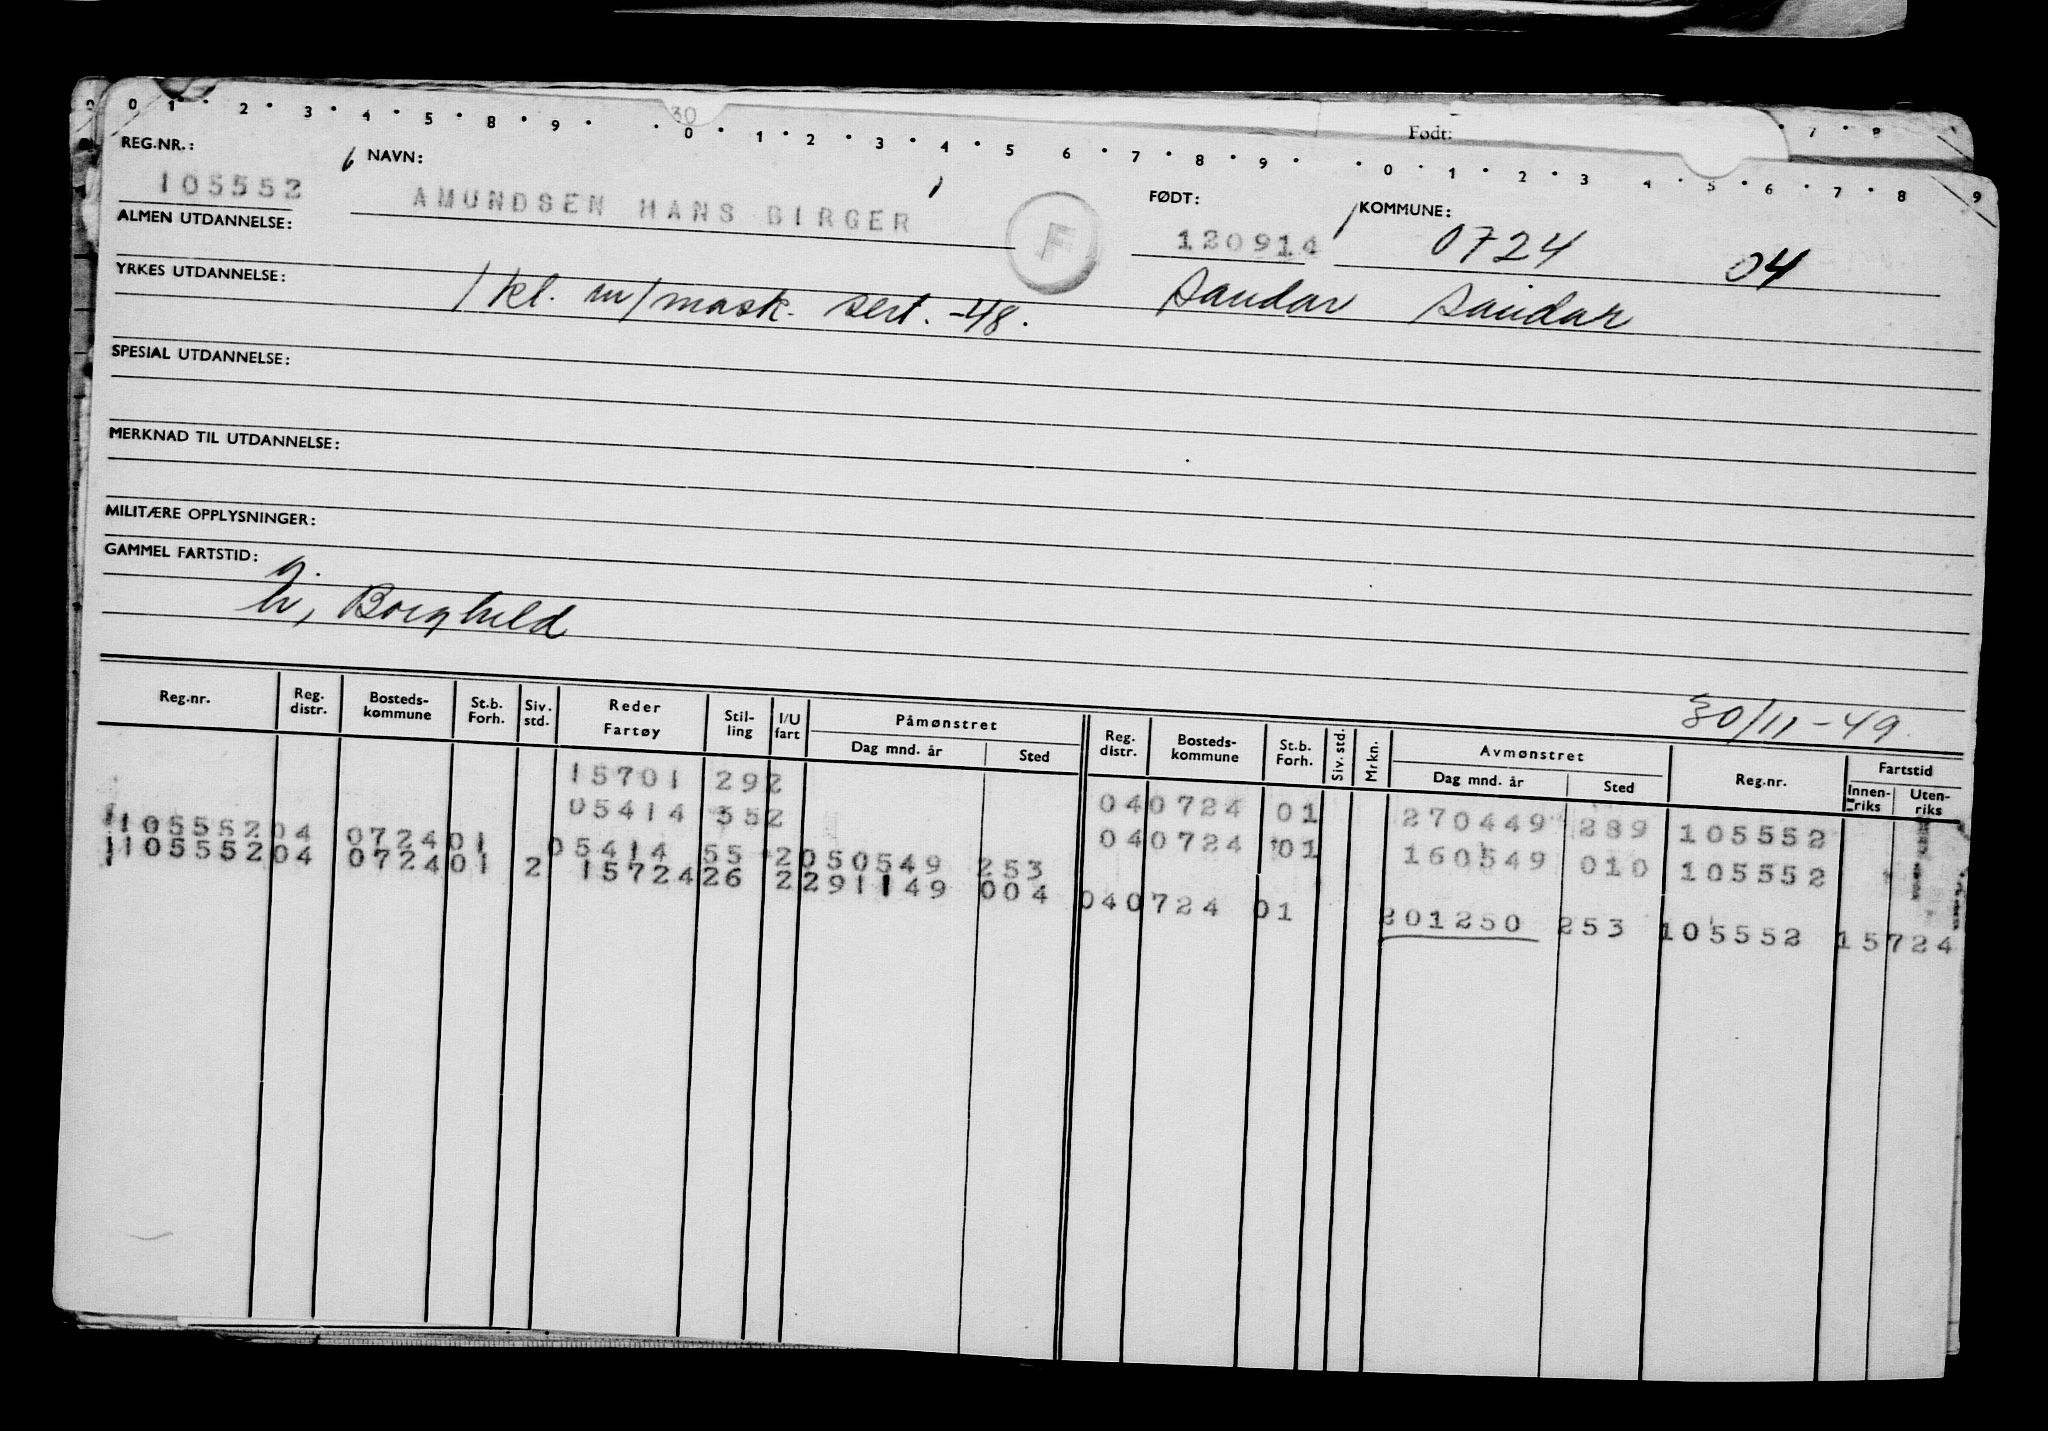 0 1 2 3 4 5 6 8 9 0 1 2 3 4 5 6 7 8 9 0 1 2 3 4 5 6 7 8 9
30
Født:
7 8
REG.NR.: NAVN: FØDT: KOMMUNE:
105552 AMUNDSEN HANS BIRGER F 120914 0724 04
ALMEN UTDANNELSE:
Sandar Sandar
YRKES UTDANNELSE: 1 kl. m/mask. sert. -48.
SPESIAL UTDANNELSE:
MERKNAD TIL UTDANNELSE:
MILITÆRE OPPLYSNINGER:
GAMMEL FARTSTID:
h, Borghild
30/11-49.
Reg.nr. Reg. distr. Bosteds-kommune St.b. Forh. Siv. std. Reder Fartøy Stil-ling I/U fart Påmønstret Dag mnd. år Sted Reg. distr. Bosteds-kommune St.b. Forh. Siv. std. Mrkn. Avmønstret Dag mnd. år Sted Reg.nr. Fartstid Innen-riks Uten-riks
15701 292 040724 01 270449 289 105552
05414 352 040724 01 160549 010 105552
110555204 072401 05414 55 2050549 253
110555204 072401 2 1572426 2291149 004 040724 01 201250 253 105552 15724